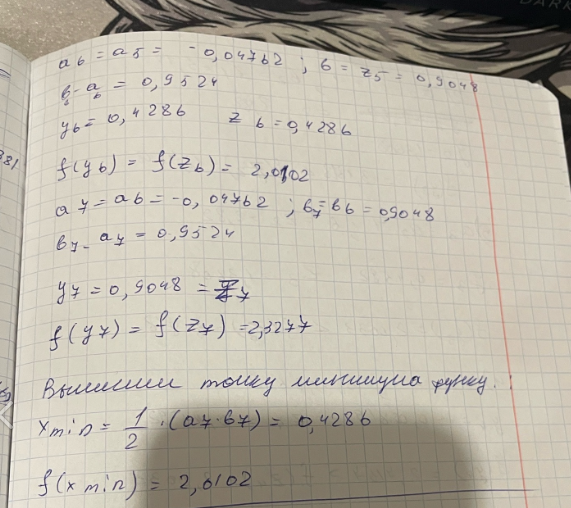 DARK
a6 = a5 = -0,04762 ; b = z5 = 0,9048
b6-a6 = 0,9524
y6 = 0,4286 z6 = 0,4286
381
f(y6) = f(z6) = 2,0102
a7 = a6 = -0,04762 ; b7 = b6 = 0,9048
b7-a7 = 0,9524
y7 = 0,9048 = z7
f(y7) = f(z7) = 2,3277
Вычислим точку минимума функ.:
xmin = 1/2 · (a7·b7) = 0,4286
f(xmin) = 2,0102